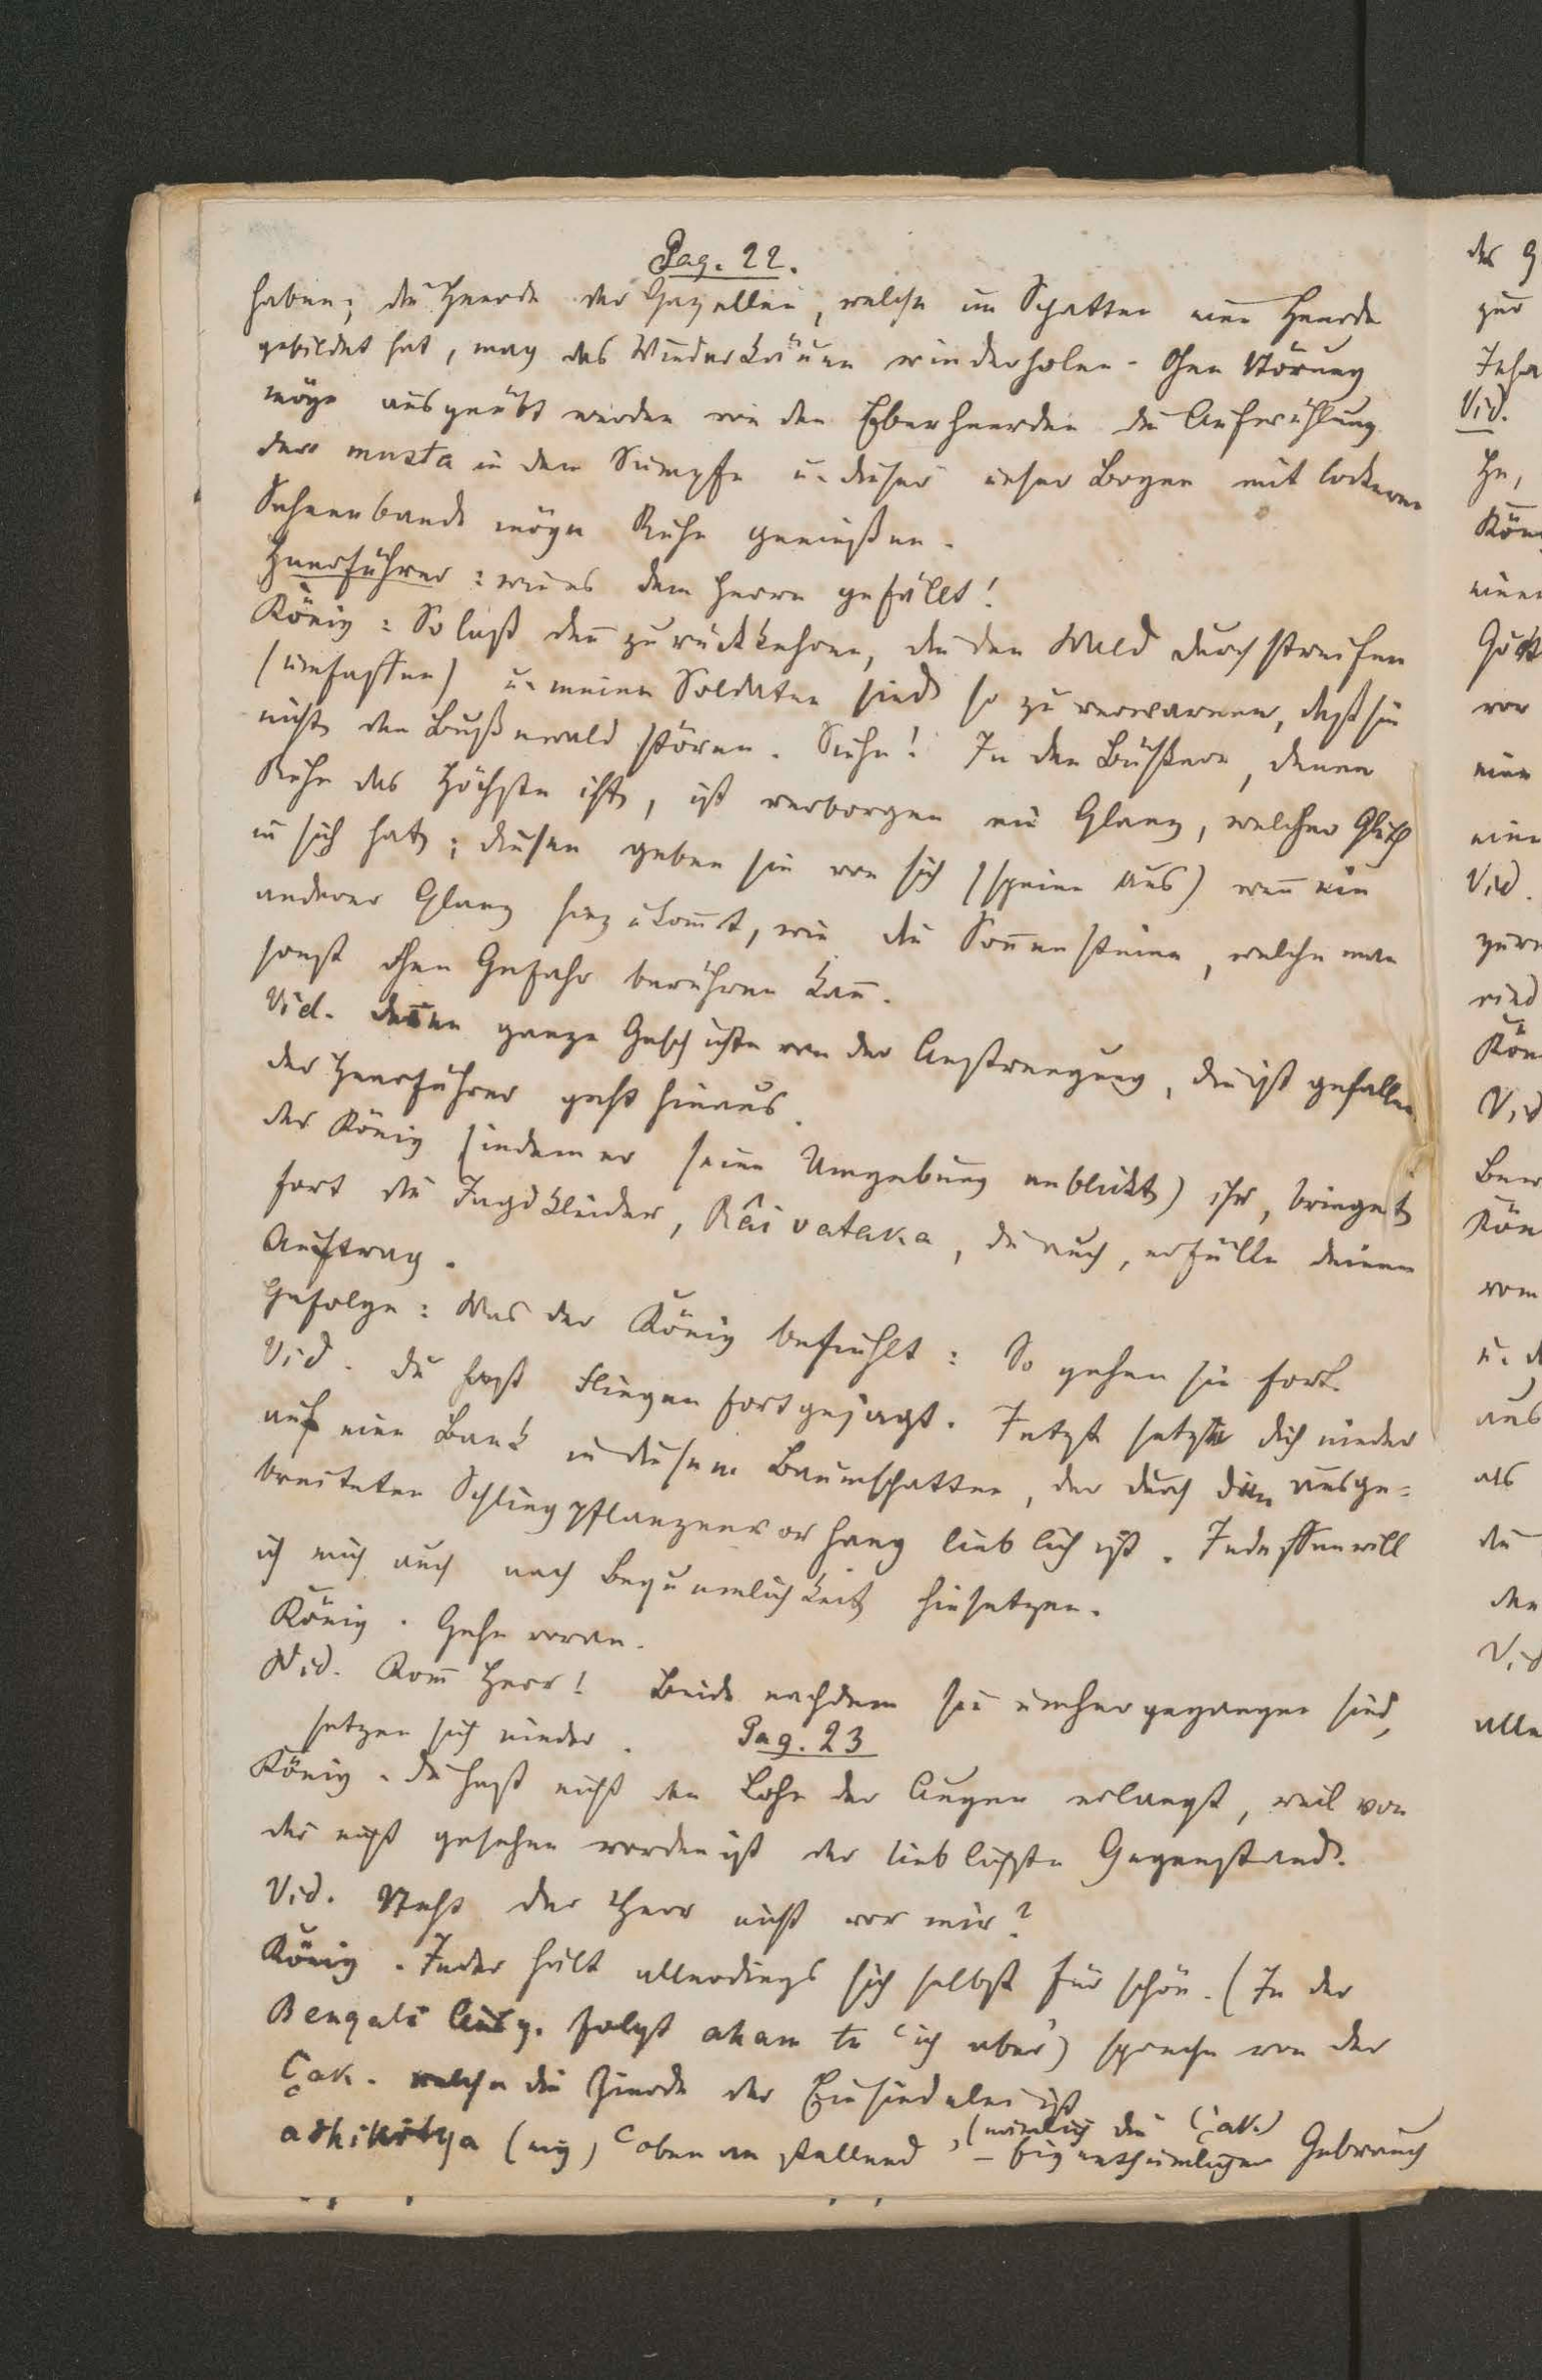 Pag. 22.
haben; die Heerde der Gazellen, welche im Schatten eine Heerde
gebildet hat, mag das Wiederkäuen wiederholen. Ohne Störung
möge ausgeübt werden von den Eberheerden die Aufwühlung
der musta in dem Sumpfe u. dieser unser Bogen mit lockerem
Sehnenbande möge Ruhe geniessen.
Heerführer: wie es dem Herrn gefällt!
König: So laß denn zurückkehren, die den Wald durchstreifen
(umfassen) u. meine Soldaten sind so zu verwarnen, daß sie
nicht den Bußewald stören. Siehe! In den Büßern, denen
Ruhe das Höchste ist, ist verborgen ein Glanz, welcher Gluth
in sich hat; diesen geben sie von sich (speien aus) wenn ein
anderer Glanz hinzukommt, wie die Sonnensteine, welche man
sonst ohne Gefahr berühren kann.
Vid. deine ganze Geschichte von der Anstrengung, die ist gefallen
der Heerführer geht hinaus.
der König (indem er seine Umgebung anblickt) ihr, bringet
fort die Jagdkleider, Râivataka, du auch, erfülle deinen
Auftrag.
Gefolge: Was der König befiehlt: So gehen sie fort.
Vid. du hast Fliegen fortgejagt. Jetzt setze dich nieder
auf eine Bank in diesem Baumschatten, der durch den ausge-
breiteten Schlingpflanzenvorhang lieblich ist. Indessen will
ich mich auch nach Bequemlichkeit hinsetzen.
König. Gehe voran.
Vid. Komm Herr! Beide nachdem sie umhergegangen sind,
setzen sich nieder. Pag. 23
König. du hast nicht den Lohn der Augen erlangt, weil von
dir nicht gesehen worden ist der lieblichste Gegenstand.
Vid. Steht der Herr nicht vor mir?
König. Jeder hält allerdings sich selbst für schön. (In der
Bengali Ausg. folgt aham tu "ich aber") spreche von der
Çak. welche die Zierde der Einsiedelei ist
(nämlich die Çak.)
adhikṛtya (ig) "obenan stellend" – Eigenthümlicher Gebrauch